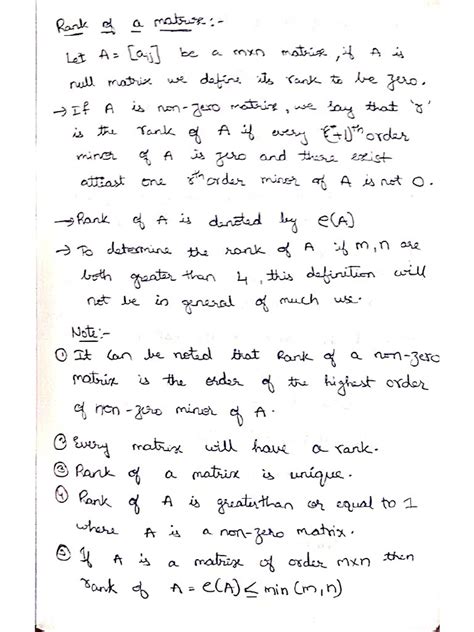 Rank of a matrix:-
Let A = [aij] be a mxn matrix, if A is
null matrix we define its rank to be zero.
→ If A is non-zero matrix, we say that 'r'
is the rank of A if every (r+1)th order
minor of A is zero and there exist
atleast one rth order minor of A is not 0.
→ Rank of A is denoted by ρ(A)
→ To determine the rank of A if m,n are
both greater than 4, this definition will
not be in general of much use.
Note:-
① It can be noted that Rank of a non-zero
matrix is the order of the highest order
of non-zero minor of A.
② Every matrix will have a rank.
③ Rank of a matrix is unique.
④ Rank of A is greater than or equal to 1
where A is a non-zero matrix.
⑤ If A is a matrix of order mxn then
rank of A = ρ(A) ≤ min (m,n)